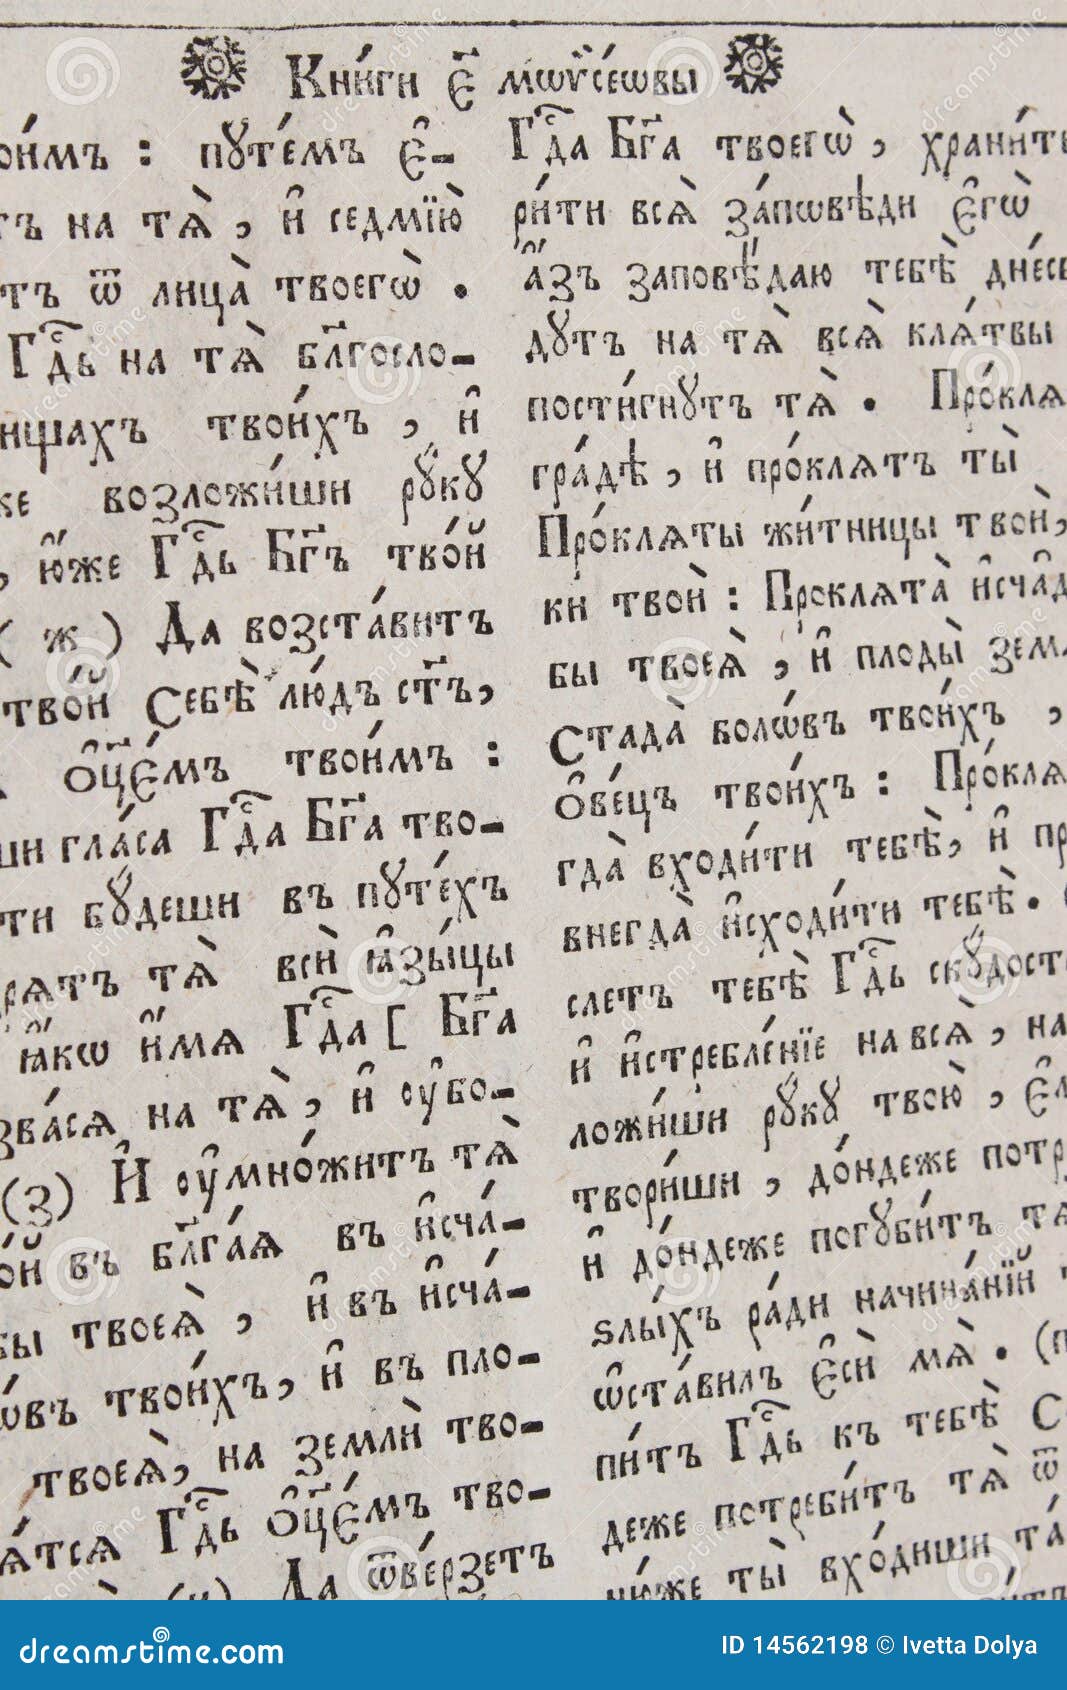 Кни́ги є҃ мѡѷсе́ѡвы
ои́мъ : пꙋте́мъ є҆-
тъ на тѧ̀ , и҆ седмїю̀
тъ ѿ лица̀ твоегѡ̀ .
Гдⷭ҇ь на тѧ̀ бл҃госло-
ищахъ твои́хъ , и҆
же возложи́ши рꙋ́кꙋ
, ю҆́же Гдⷭ҇ь Бг҃ъ тво́й
( ж ) Да возста́витъ
тво́й Себѣ̀ лю́дъ ст҃ъ,
ѻ҆ц҃є́мъ твои́мъ :
ши гла́са Гдⷭ҇а Бг҃а тво-
ти бꙋ́деши въ пꙋте́хъ
рѧтъ тѧ̀ всѝ ꙗ҆зы́цы
ꙗ҆́кѡ и҆́мѧ Гдⷭ҇а [ Бг҃а
зва́сѧ на тѧ̀ , и҆ оу҆бо-
(з) И҆ оу҆мно́житъ тѧ̀
о́й въ бл҃га́ѧ въ и҆сча́-
бы твоеѧ̀ , и҆ въ и҆сча́-
ѡ́въ твои́хъ, и҆ въ пло-
твоеѧ̀, на землѝ тво-
ѧ́тсѧ Гдⷭ҇ь ѻ҆ц҃є́мъ тво-
(и) Да ѿве́рзетъ
Гдⷭ҇а Бг҃а твоегѡ̀ , храни́ти
ри́ти всѧ̀ за́пѡвѣди є҆гѡ̀
а҆́зъ заповѣ́даю тебѣ̀ дне́сь
дꙋтъ на тѧ̀ всѧ̀ клѧ́твы
пости́гнꙋтъ тѧ̀ . Про́клѧ
гра́дѣ , и҆ про́клѧтъ ты̀
Про́клѧты жи́тницы твоѝ,
ки твоѝ : Проклѧта̀ и҆сча̑д
бы твоеѧ̀ , и҆ плоды̀ зем
Стада̀ волѡ́въ твои́хъ ,
ѻ҆ве́цъ твои́хъ : Про́клѧ
гда̀ входи́ти тебѣ̀, и҆ пр
внегда̀ и҆сходи́ти тебѣ̀ .
слетъ тебѣ̀ Гдⷭ҇ь скꙋ́дост
и҆ и҆стребле́нїе на всѧ̀ , на
ложи́ши рꙋ́кꙋ твою̀ , є҆л
твори́ши , до́ндеже потр
и҆ до́ндеже погꙋби́тъ тѧ
ѕлы́хъ ра́ди начина́нїй
ѡ҆ста́вилъ є҆сѝ мѧ̀ . (п
пи́тъ Гдⷭ҇ь къ тебѣ̀ С
деже потреби́тъ тѧ̀ ѿ
ню́же ты̀ вхо́диши та́
dreamstime.com
ID 14562198 © Ivetta Dolya